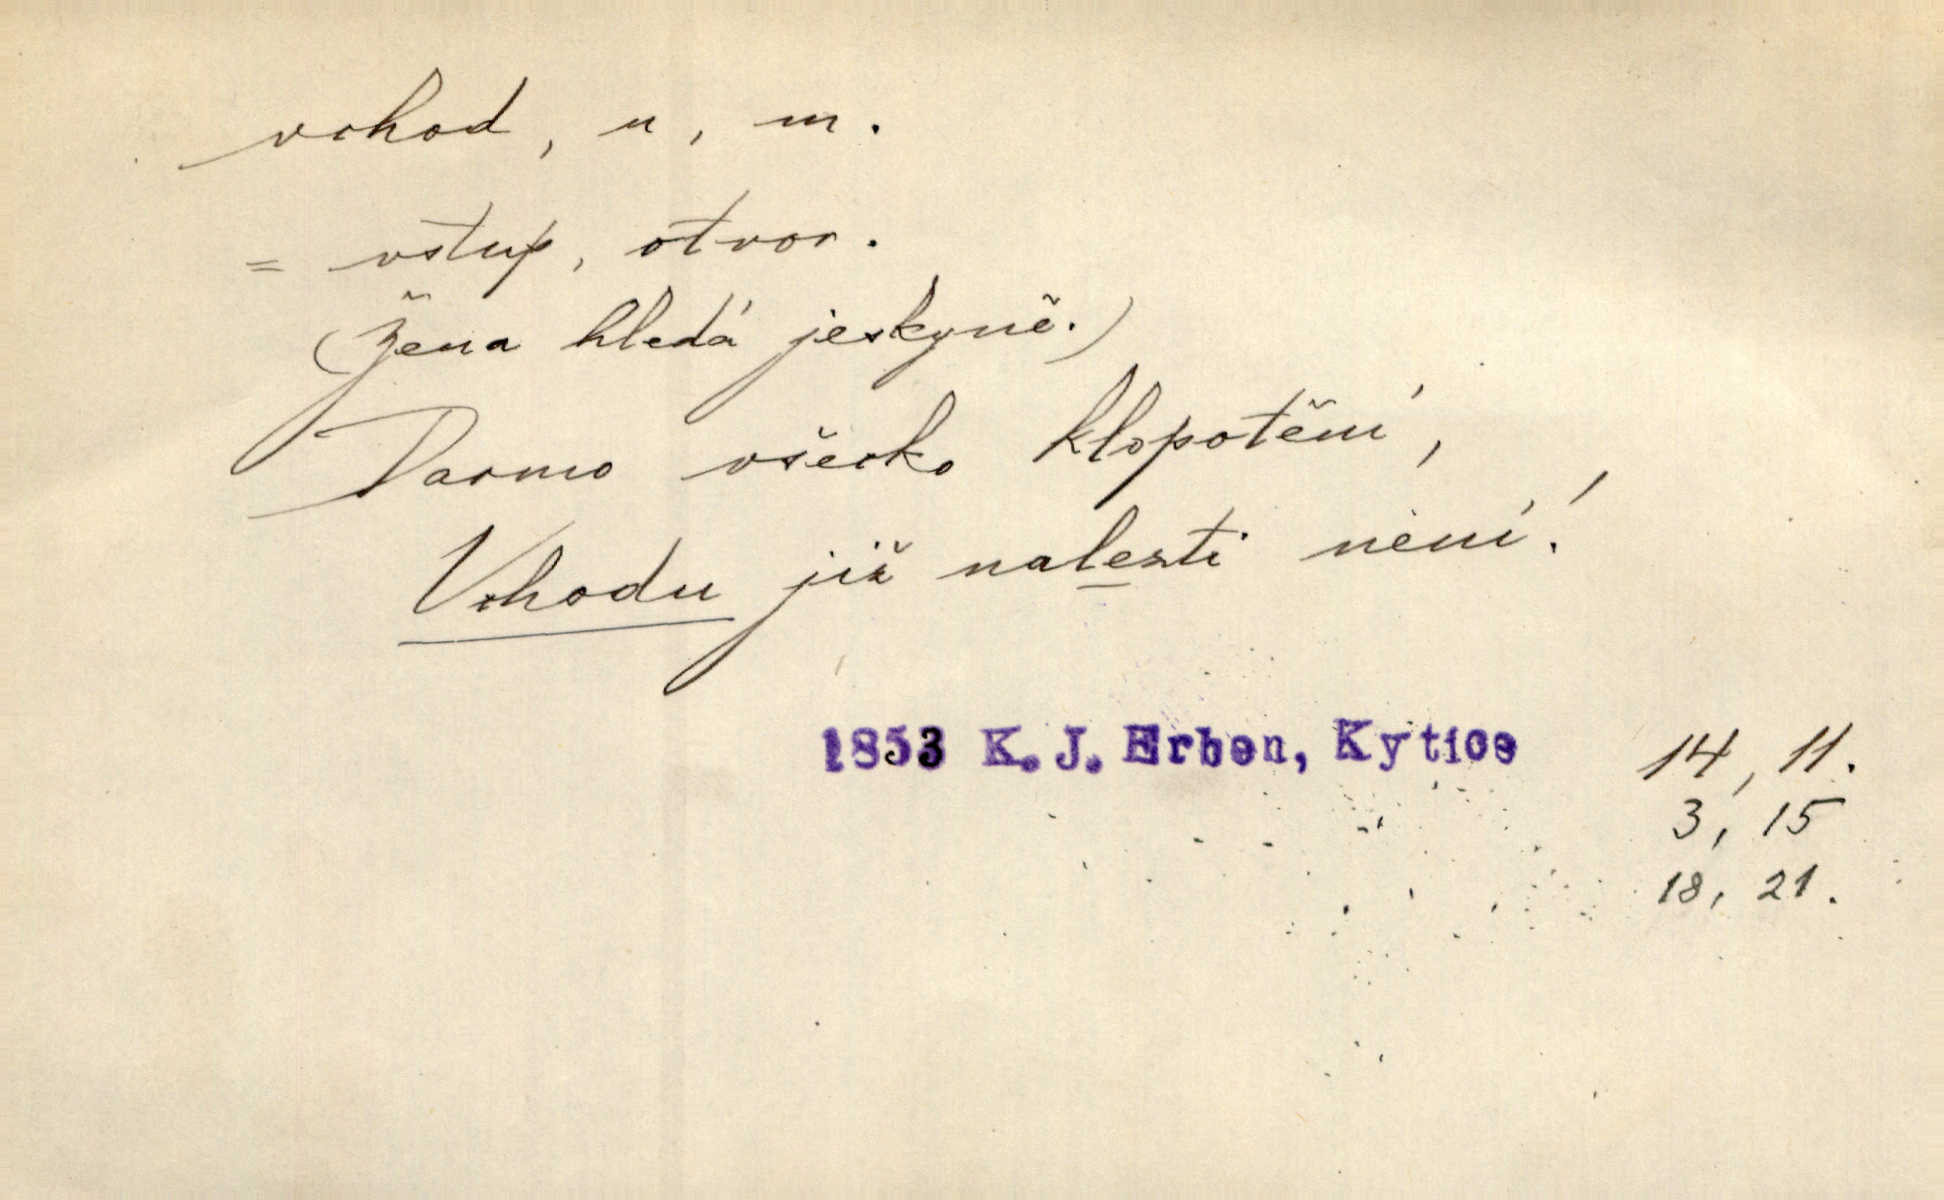 vchod, u, m.
= vstup, otvor.
(Žena hledá jeskyně.)
Darmo všecko klopotění,
Vchodu již nalezti není!
1853 K. J. Erben, Kytice 14, 11.
3, 15
18, 21.